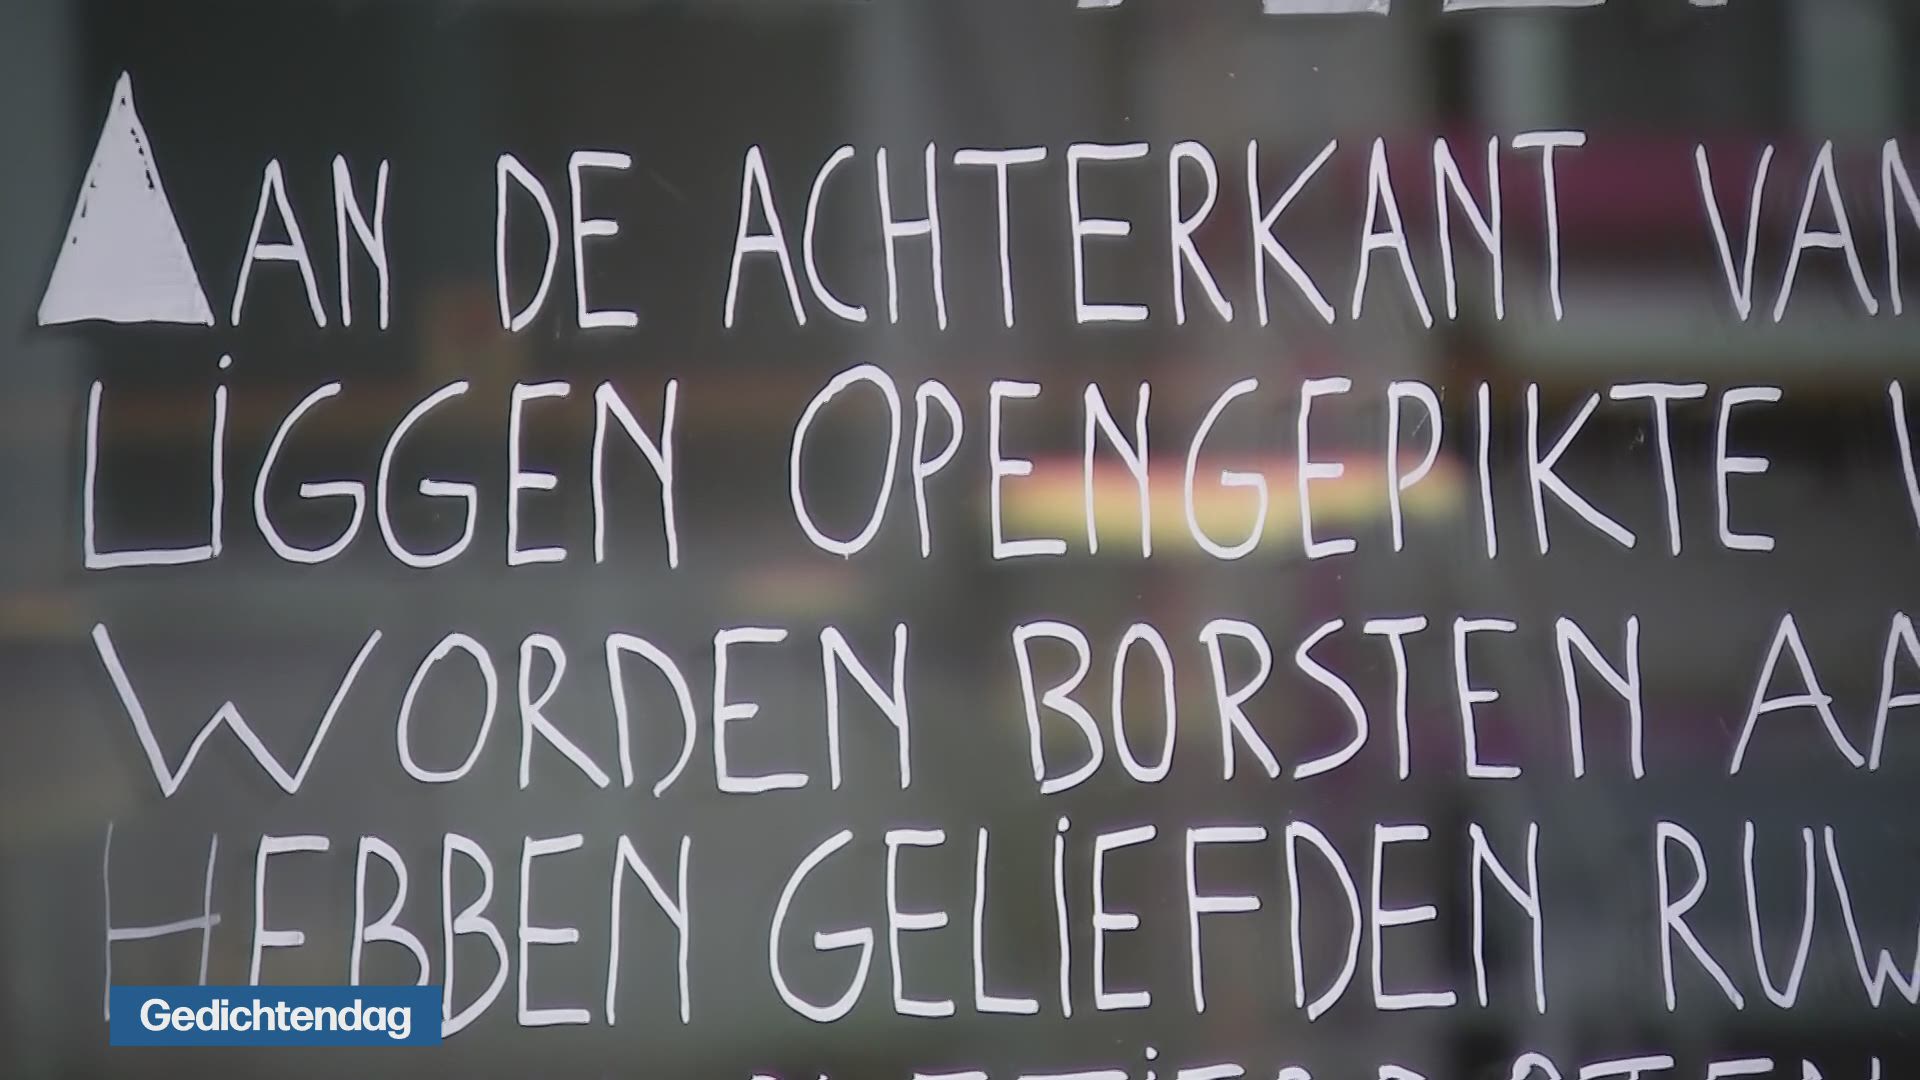 AAN DE ACHTERKANT VAN
LIGGEN OPENGEPIKTE
WORDEN BORSTEN
HEBBEN GELIEFDEN
Gedichtendag